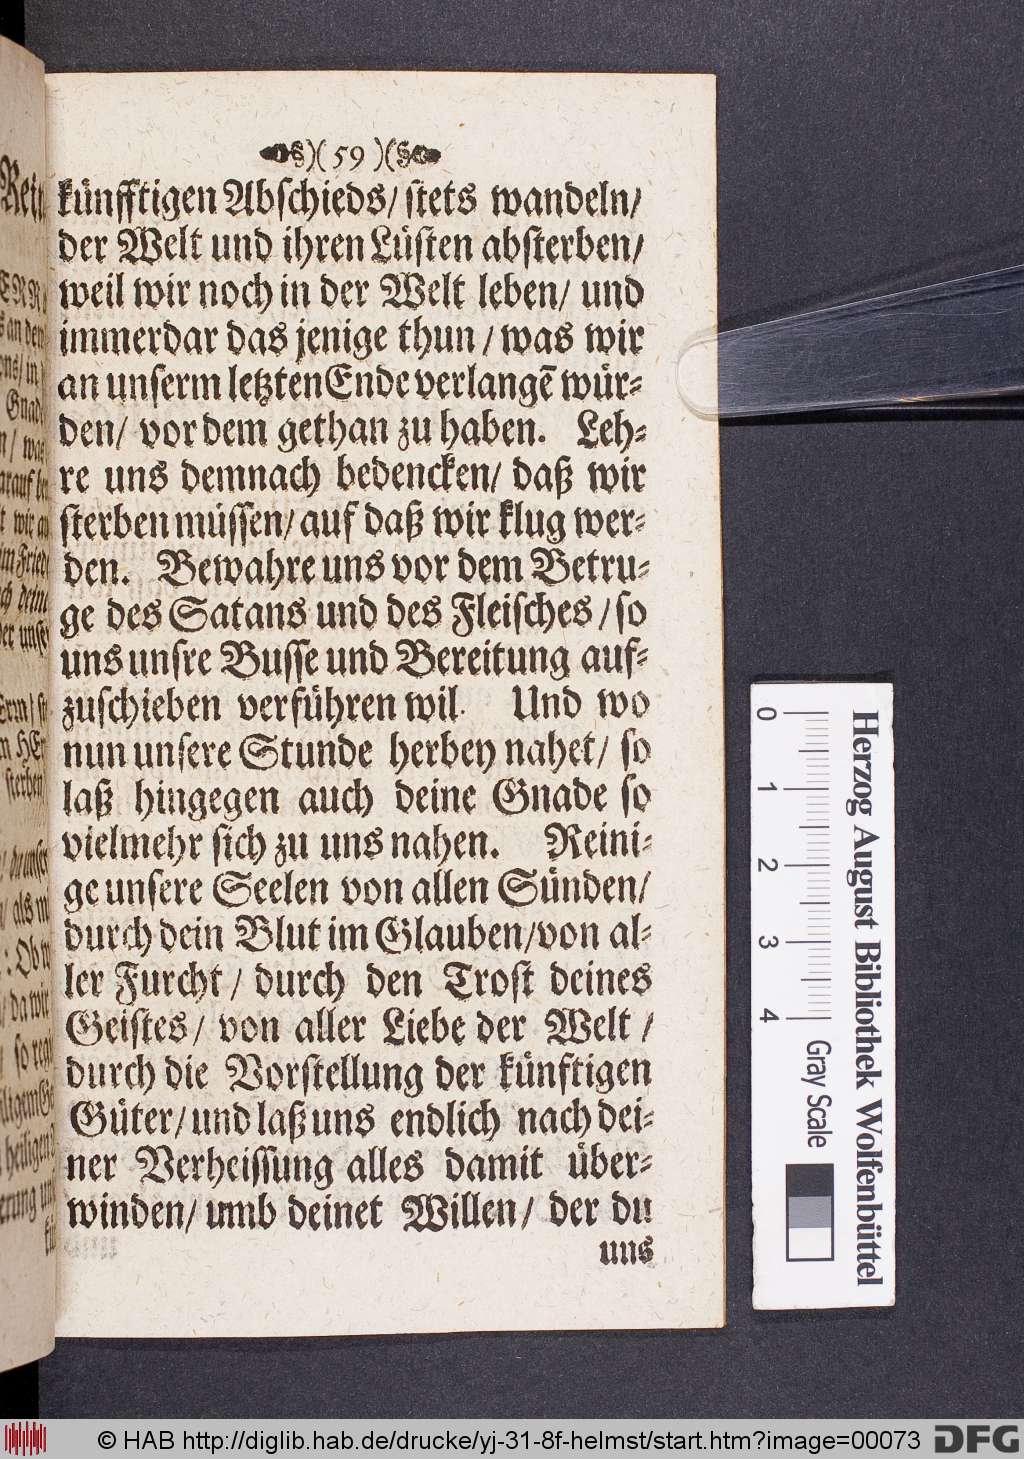 )( 59 )(
künfftigen Abschieds/ stets wandeln/
der Welt und ihren Lüsten absterben/
weil wir noch in der Welt leben/ und
immerdar das jenige thun / was wir
an unserm letzten Ende verlangē wür-
den/ vor dem gethan zu haben. Leh-
re uns demnach bedencken/ daß wir
sterben müssen/ auf daß wir klug wer-
den. Bewahre uns vor dem Betru-
ge des Satans und des Fleisches / so
uns unsre Busse und Bereitung auf-
zuschieben verführen wil. Und wo
nun unsere Stunde herbey nahet/ so
laß hingegen auch deine Gnade so
vielmehr sich zu uns nahen. Reini-
ge unsere Seelen von allen Sünden/
durch dein Blut im Glauben/von al-
ler Furcht / durch den Trost deines
Geistes/ von aller Liebe der Welt /
durch die Vorstellung der künftigen
Güter/ und laß uns endlich nach dei-
ner Verheissung alles damit über-
winden/ umb deinet Willen/ der du
uns
Herzog August Bibliothek Wolfenbüttel
0 1 2 3 4 Gray Scale
© HAB http://diglib.hab.de/drucke/yj-31-8f-helmst/start.htm?image=00073
DFG